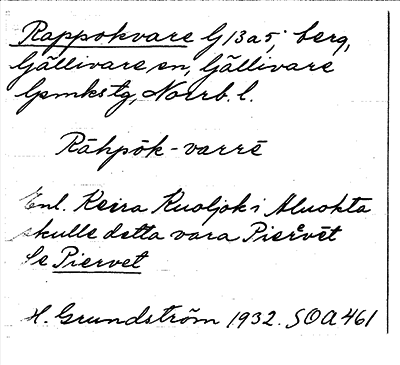 Rappokvare G 13 a 5; berg,
Gällivare sn, Gällivare
lpmkstg, Norrb. l.
Råhpōk-varrē
Enl. Keira Kuoljok i Aluokta
skulle detta vara Piervēt
Se Piervet
H. Grundström 1932. SOA 461